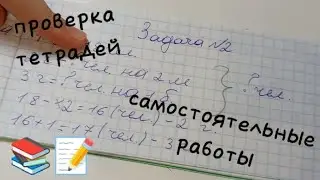 проверка
тетрадей
Задача №2
чел на 2 м
3 г = ? чел на 1 б
? чел.
18 - 2 = 16 (чел) - 2 г.
16 + 1 = 17 (чел) - 3
самостоятельные
работы